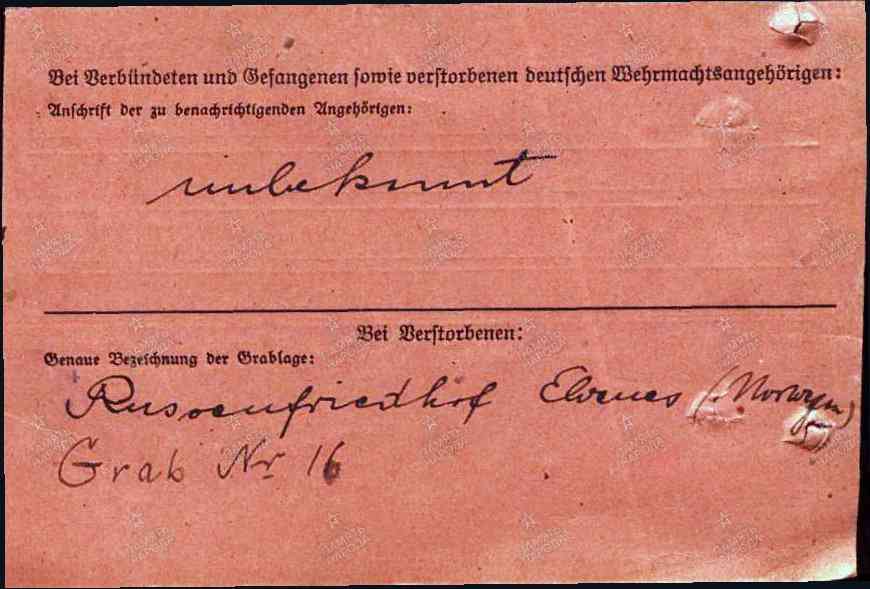 Bei Verbündeten und Gefangenen sowie verstorbenen deutschen Wehrmachtsangehörigen:
Anschrift der zu benachrichtigenden Angehörigen:
unbekannt
Bei Verstorbenen:
Genaue Bezeichnung der Grablage:
Russenfriedhof Elvenes (Norwegen)
Grab Nr 16